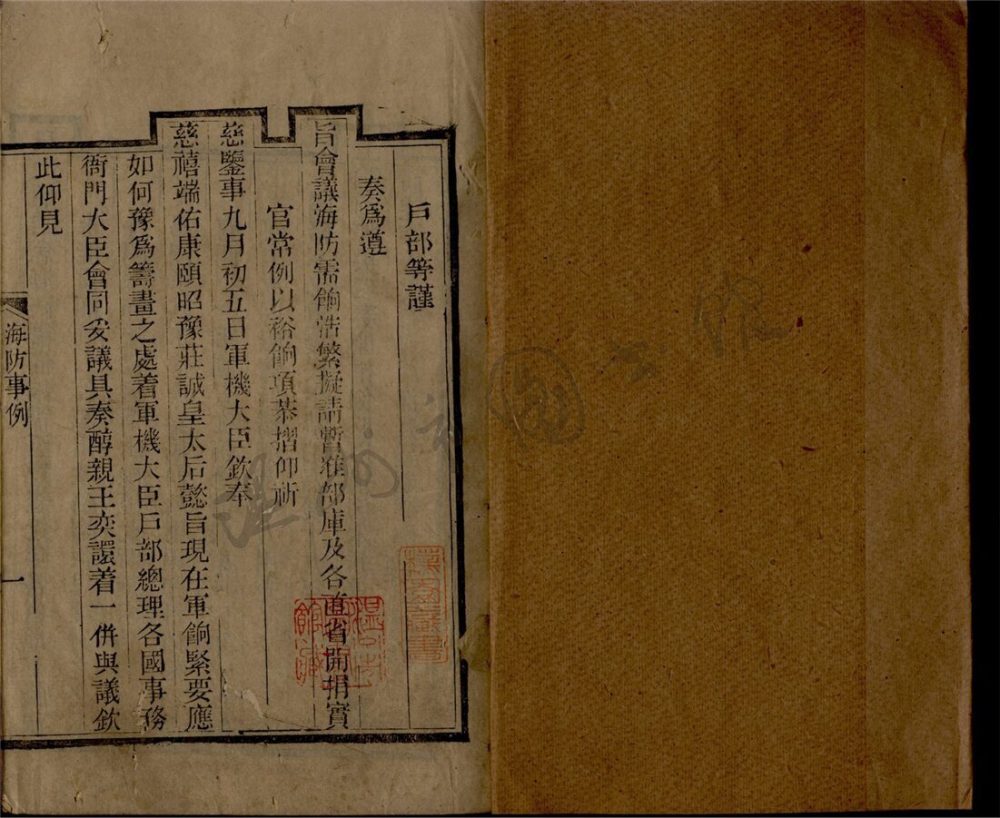 戶部等謹
奏爲遵
旨會議海防需餉浩繁擬請暫準部庫及各直省開捐實
官常例以裕餉項恭摺仰祈
慈鑒事九月初五日軍機大臣欽奉
慈禧端佑康頤昭豫莊誠皇太后懿旨現在軍餉緊要應
如何豫爲籌畫之處着軍機大臣戶部總理各國事務
衙門大臣會同妥議具奏醇親王奕譞着一併與議欽
此仰見
海防事例
一